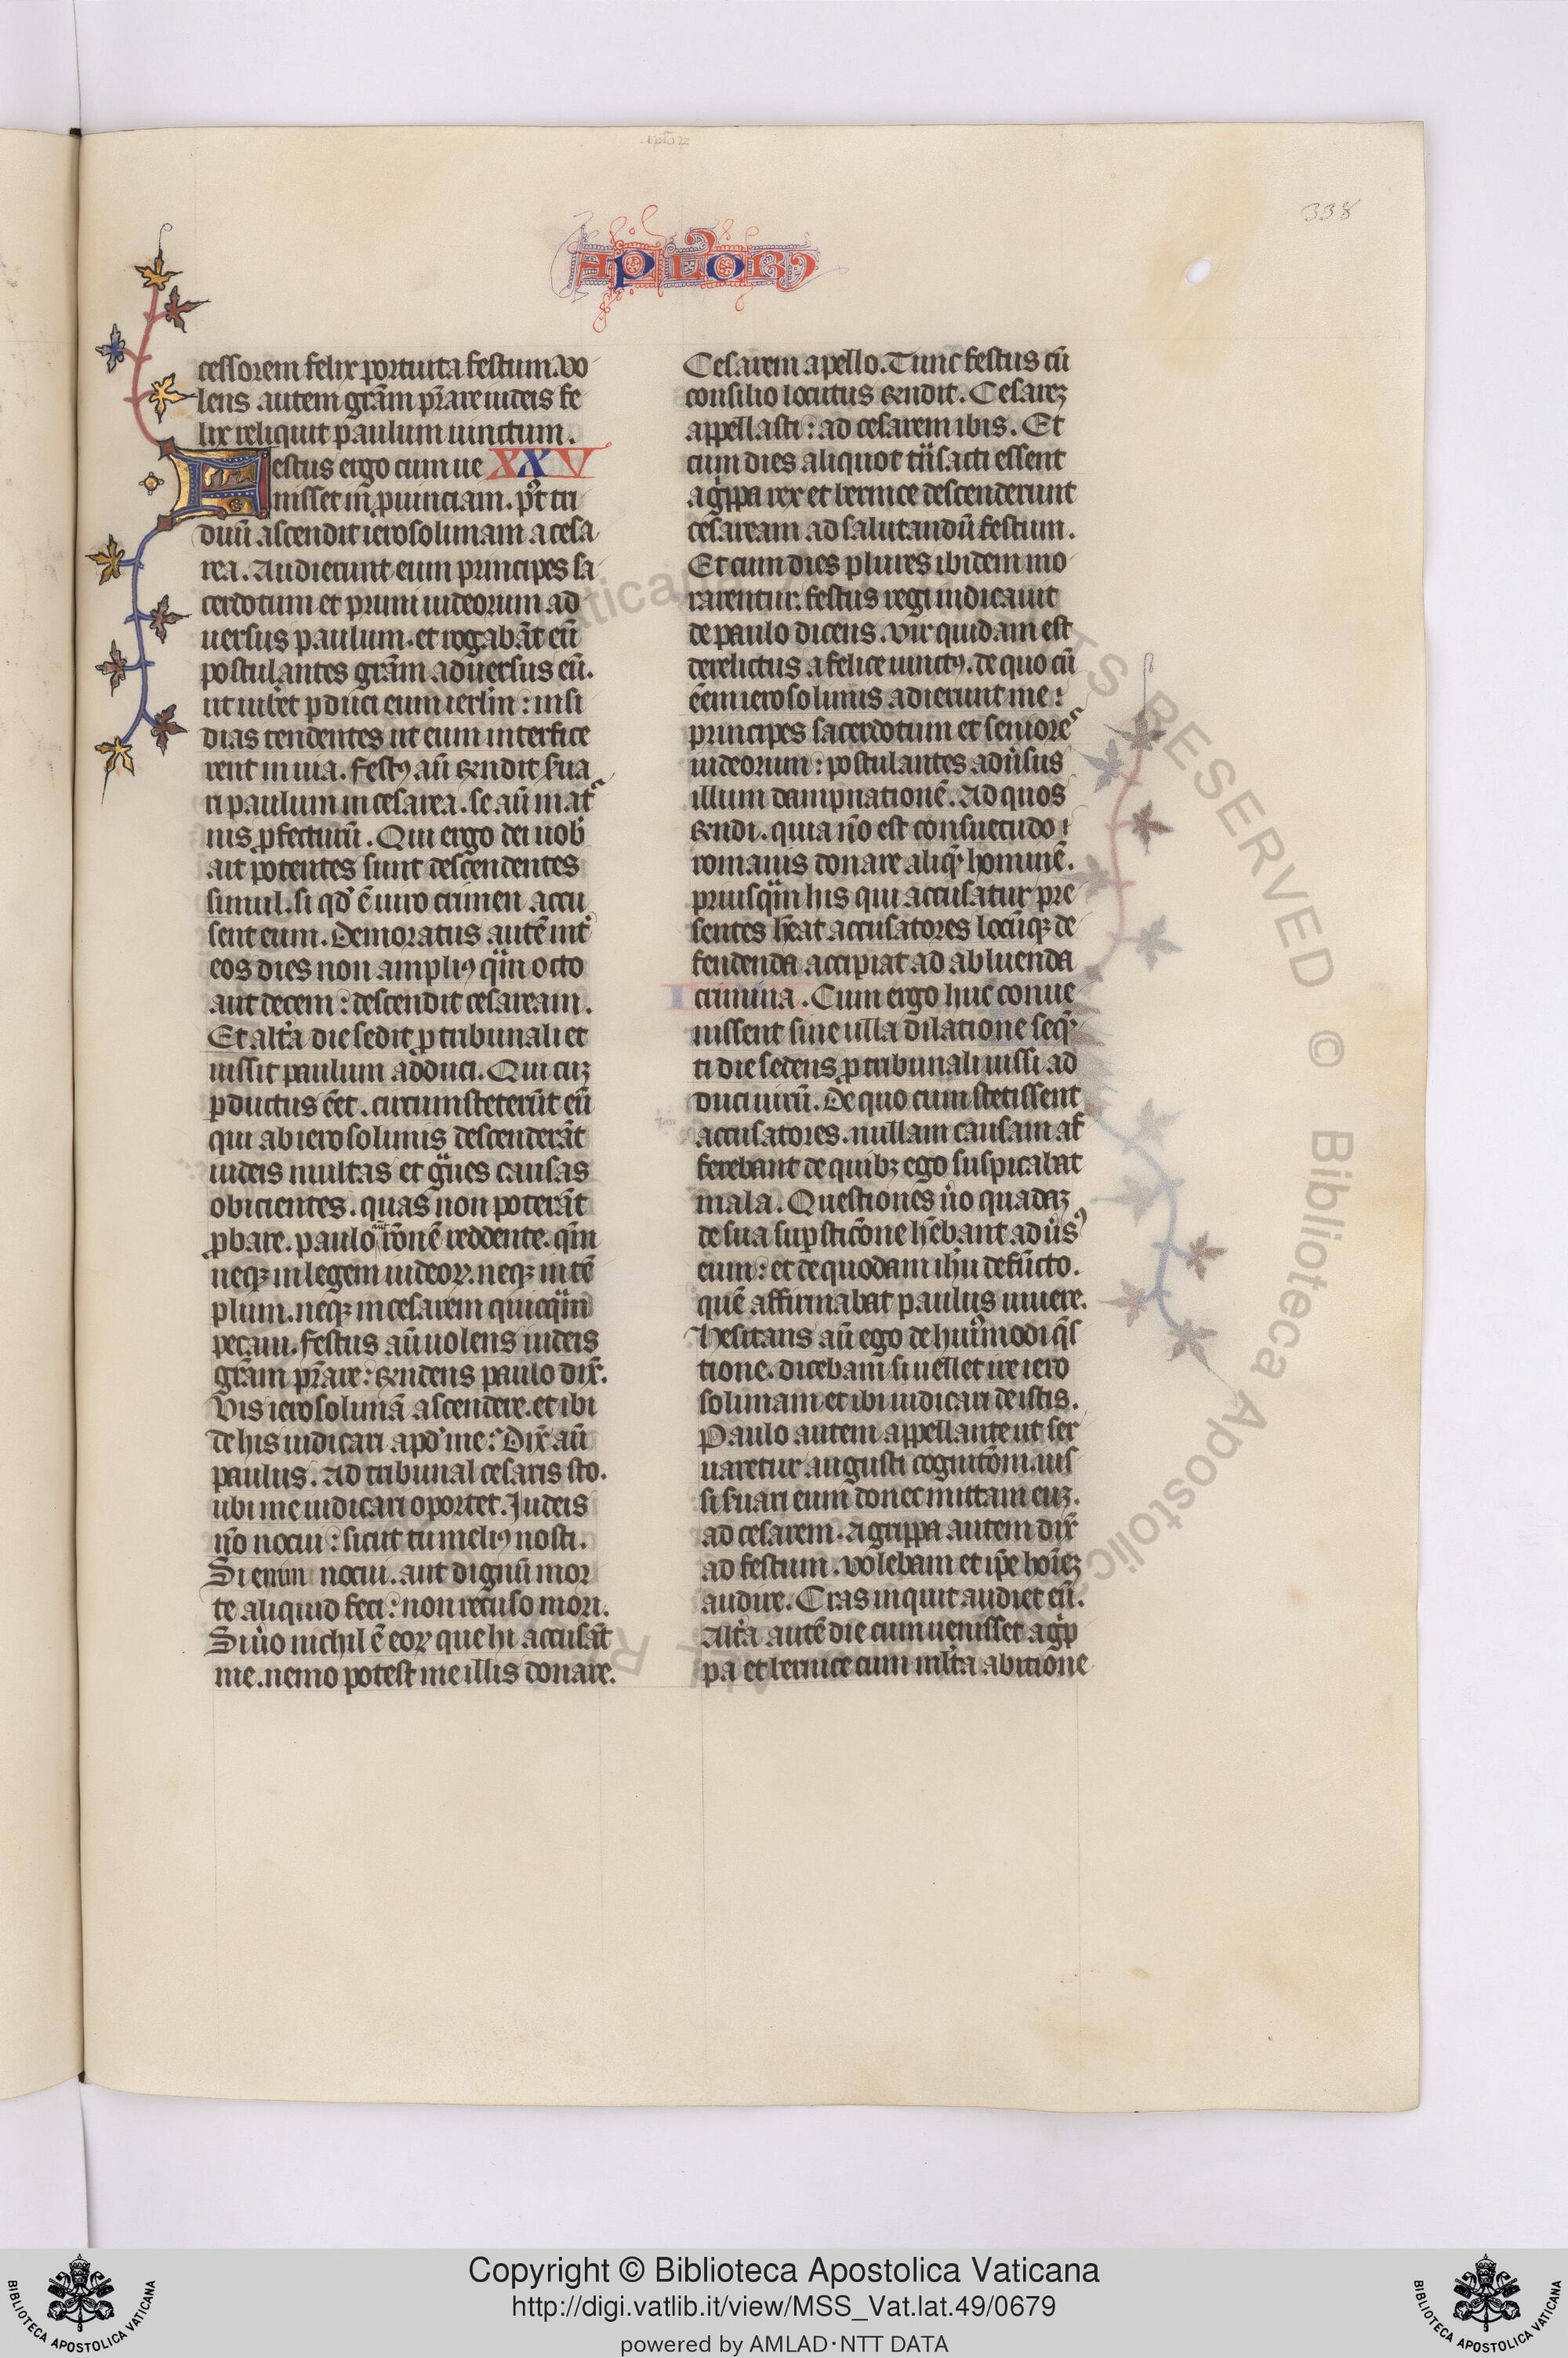 338
APLORꝫ
cessorem felix portium festum. Vo
lens autem grām p̄stare iudeis fe
lix reliquit paulum uinctum.
Festus ergo cum ue XXV
nisset in ꝓuinciam. post tri
duū ascendit ierosolimam a cesa
rea. Audierunt eum principes sa
cerdotum et primi iudeorum ad
uersus paulum. et rogabāt eū
postulantes grām aduersus eū.
ut iubēt ꝑduci eum ierlm̄: insi
dias tendentes ut eum interfice
rent in uia. Festꝰ aū rn̄dit sua
ri paulum in cesarea. se aū mat
nis ꝓfecturū. Qui ergo dei uob̄
ait potentes sunt descendentes
simul. si qd̄ ē uiro crimen accu
sent eum. Demoratus autē int̄
eos dies non ampliꝰ qm̄ octo
aut decem: descendit cesaream.
Et altͣa die sedit ꝓ tribunali et
iussit paulum adduci. Qui cuꝫ
ꝑductus eēt. circumsteterūt eū
qui ab ierosolimis descenderāt
iudeis multas et gͣues causas
obicientes. quas non poterāt
ꝓbare. paulo aut̄ rōnē reddente. qm̄
neqꝫ in legem iudeoꝝ. neqꝫ in tē
plum. neqꝫ in cesarem quicqͣm
peccaui. Festus aū uolens iudeis
grām p̄stare: rn̄dens paulo dix̄.
Vis ierosolimā ascendere. et ibi
de his iudicari apd̓ me? Dix̄ aū
paulus. Ad tribunal cesaris sto.
ubi me iudicari oportet. Judeis
nō nocui: sicut tu meliꝰ nosti.
Si enim nocui. aut dignū mor
te aliquid feci: non recuso mori.
Si ūo nichil ē eoꝝ que hi accusāt
me. nemo potest me illis donare.
Cesarem apello. Tunc festus cū
consilio locutus rn̄dit. Cesareꝫ
appellasti: ad cesarem ibis. Et
cum dies aliquot tͣnsacti essent
agͥppa rex et bernice descenderunt
cesaream ad salutandū festum.
Et cum dies plures ibidem mo
rarentur. festus regi indicauit
de paulo dicens. Vir quidam est
derelictus a felice uinctꝰ. de quo cū
eēm ierosolimis adierunt me
principes sacerdotum et seniores
iudeorum: postulantes adūsus
illum dampnationē. Ad quos
rn̄di. quia nō est consuetudo
romanis donare aliqͫ hominē.
priusqͣm his qui accusatur pre
sentes hēat accusatores locūqꝫ de
fendenda accipiat ad abluenda
crimina. Cum ergo huc conue
nissent sine ulla dilatione seqn̄
ti die sedens ꝓ tribunali iussi ad
duci uirū. De quo cum stetissent
accusatores. nullam causam af
ferebant de quibꝫ ego suspicabar
mala. Questiones ūo quasdaꝫ
de sua suꝑsticōne hēbant adūsꝰ
eum: et de quodam ihū defūcto.
quē affirmabat paulus uiuere.
Hesitans aū ego de huiꝰmodi q̄s
tione. dicebam si uellet ire iero
solimam et ibi iudicari de istis.
Paulo autem appellante ut ser
uaretur augusti cognitōm. ius
si suari eum donec mittam euꝫ.
ad cesarem. Agrippa autem dix̄
ad festum. Volebam et ip̄e hoīeꝫ
audire. Cras inquit audies eū.
Altͣa autē die cum uenisset agͥp
pa et bernice cum mlt̄a abitione
Copyright © Biblioteca Apostolica Vaticana
http://digi.vatlib.it/view/MSS_Vat.lat.49/0679
powered by AMLAD·NTT DATA
BIBLIOTECA APOSTOLICA VATICANA
BIBLIOTECA APOSTOLICA VATICANA